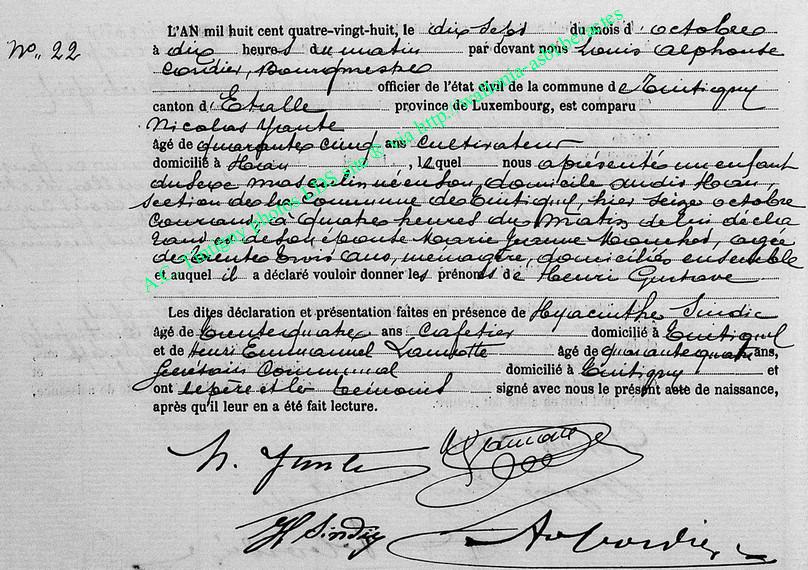 N°. 22
L'AN mil huit cent quatre-vingt-huit, le dix sept du mois d'octobre
à dix heures du matin par devant nous Louis Alphonse
Cordier, Bourgmestre
officier de l'état civil de la commune de Tintigny
canton d'Etalle province de Luxembourg, est comparu
Nicolas
âgé de quarante cinq ans cultivateur
domicilié à Han, lequel nous a présenté un enfant
du sexe masculin né en son domicile au dit Han,
section de la commune de Tintigny, hier seize octobre
courant à quatre heures du matin de lui décla
rant et de son épouse Marie Jeanne, agée
de trente trois ans, ménagère, domiciliés ensemble
et auquel il a déclaré vouloir donner les prénoms de Henri Gustave
Les dites déclaration et présentation faites en présence de Hyacinthe Sindic
âgé de trente quatre ans Cafetier domicilié à Tintigny
et de Henri Emmanuel Lamotte âgé de quarante quatre ans,
Secrétaire Communal domicilié à Tintigny et
ont le père et les témoins signé avec nous le présent acte de naissance,
après qu'il leur en a été fait lecture.
H Sindic